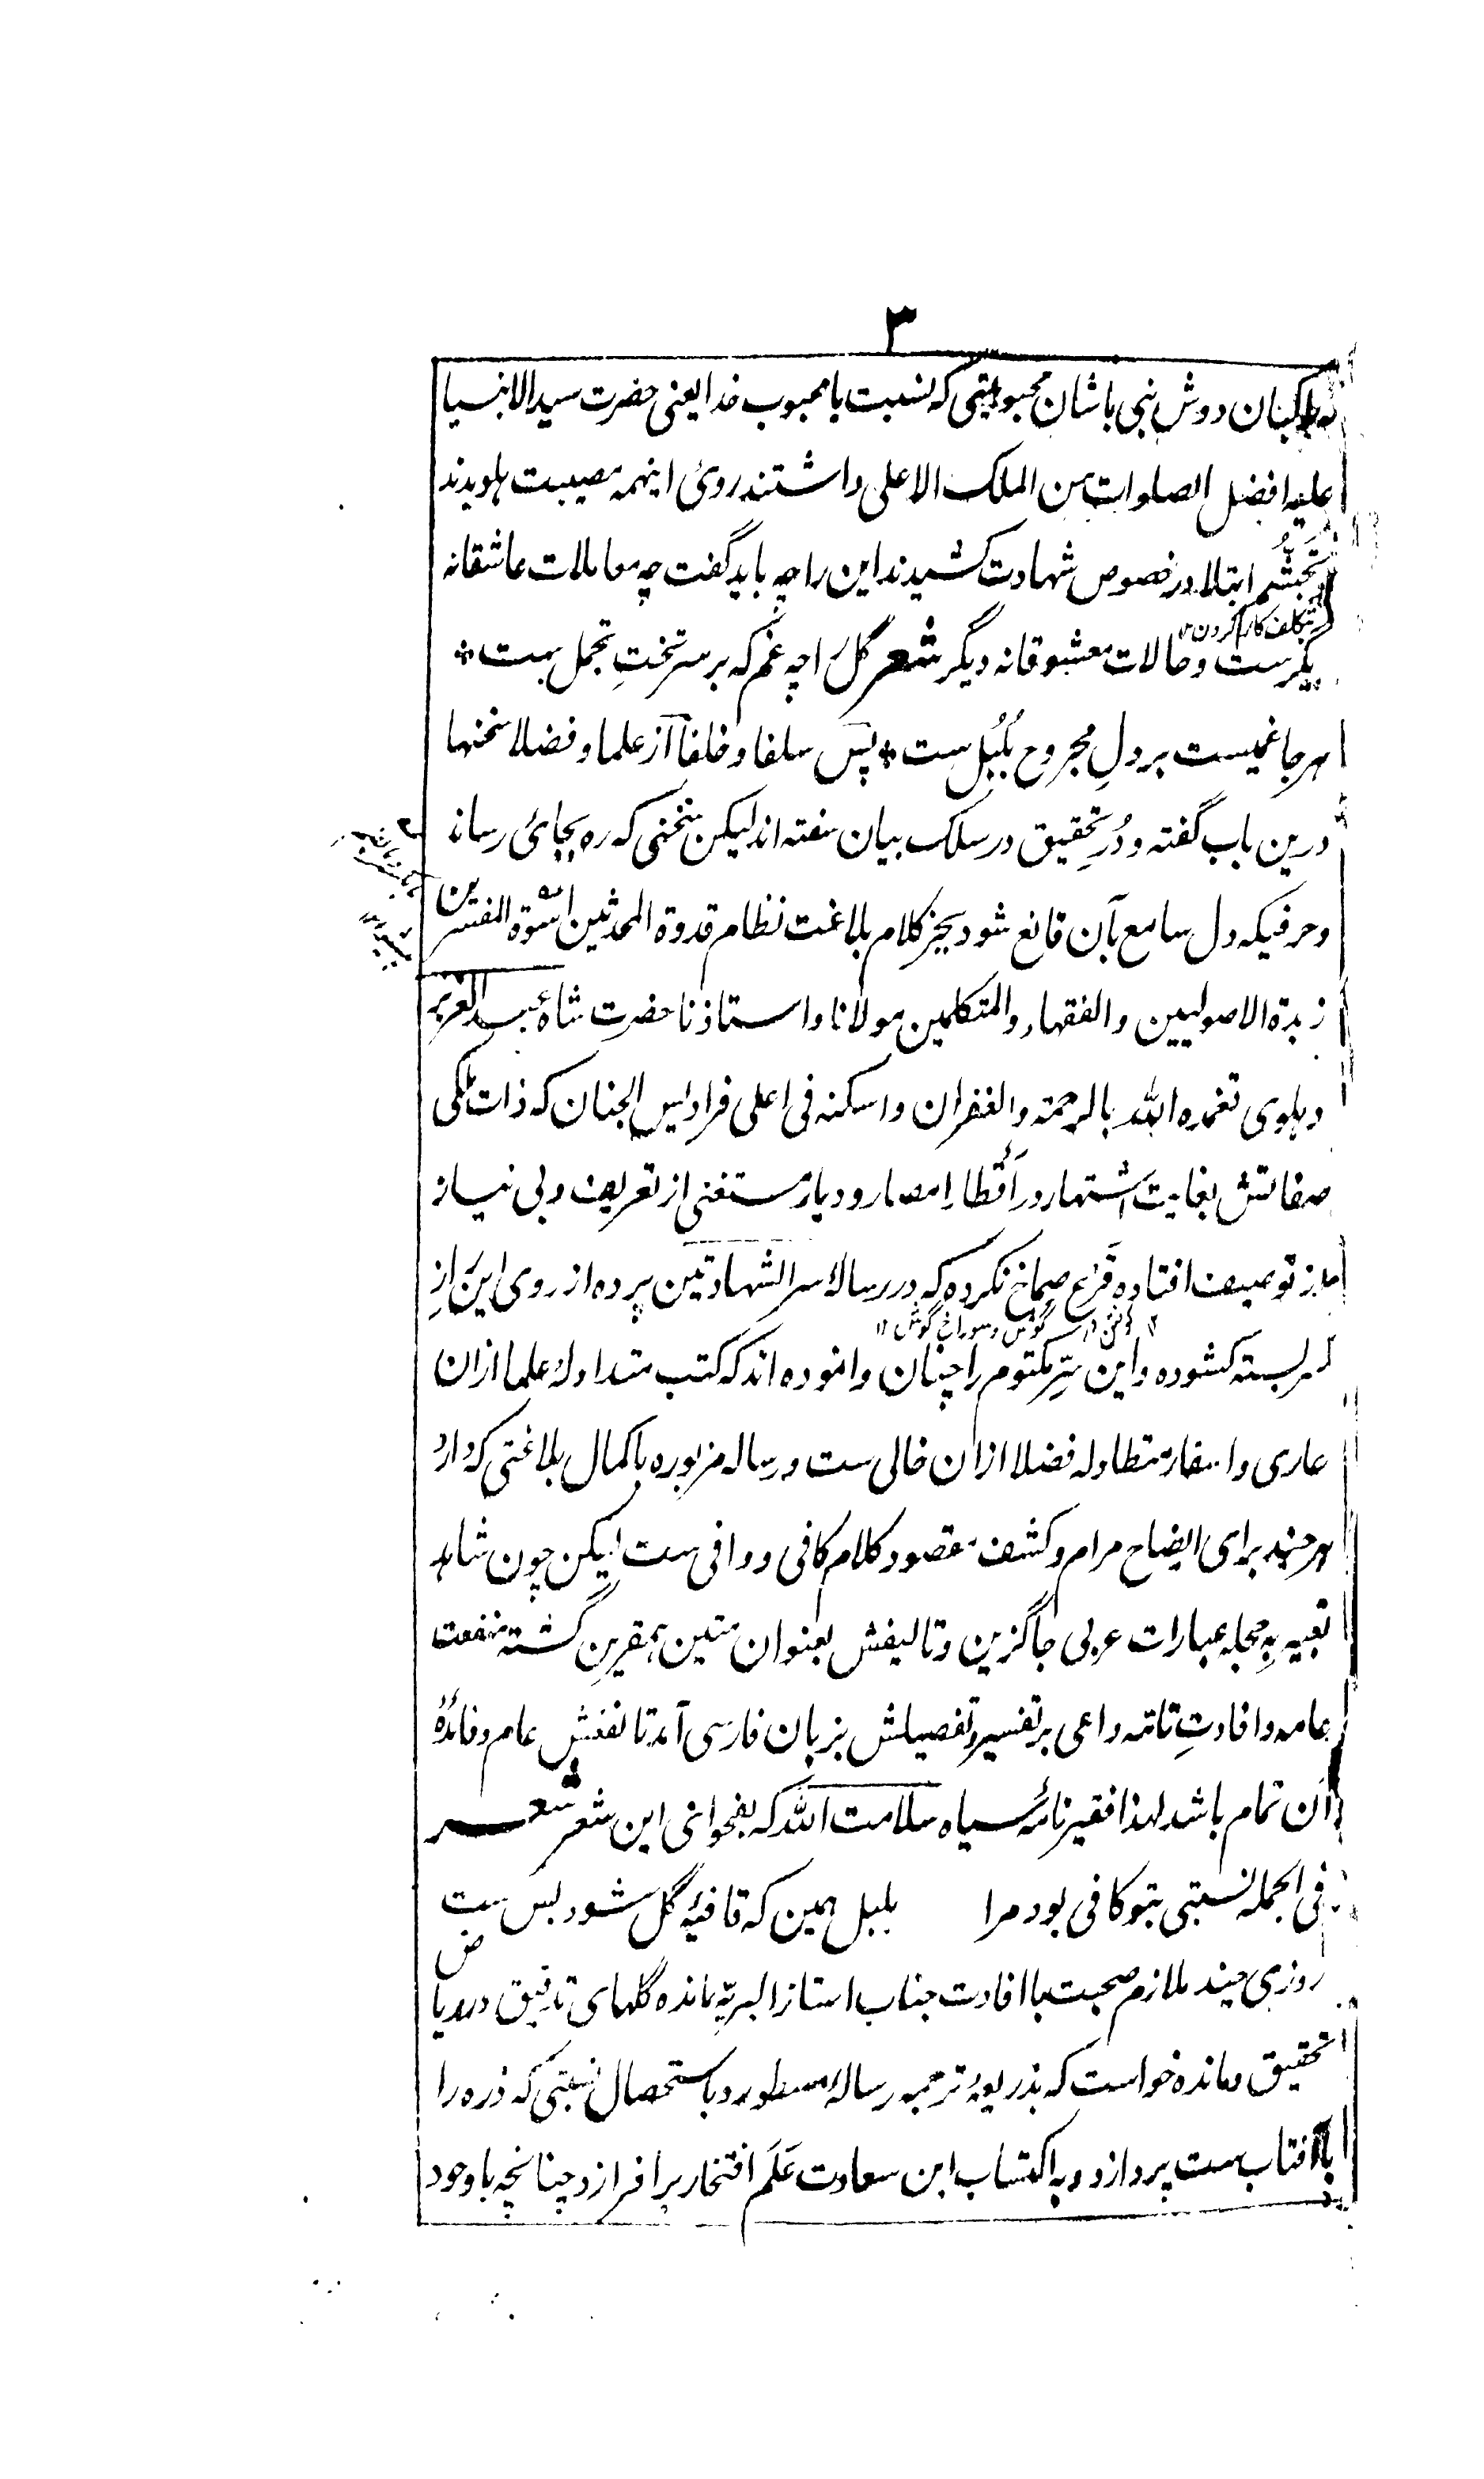 ۳
راکبان دوش نبی باشان محبوبیتی که نسبت با محبوب خدا یعنی حضرت سید الانبیا
علیه افضل الصلوات من الملک الاعلی داشتند روی اینهمه مصیبت بلو بدند
و تجشُّم ابتلا در خصوص شهادت کشیدند این را چه باید گفت چه معاملات عاشقانه
بتکلف کار کردن ۱۲
دیگرست و حالات معشوقانه دیگر شعر گل را چه غم که بر سر تختِ تجمل ست *
هر جا غمیست بر دلِ مجروح بُلبُل ست * پس سلفا و خلفا از علما و فضلا سخنها
درین باب گفته و دُرِ تحقیق در سلک بیان سفته اند لیکن سخنی که ره بجائی رساند
و حرفیکه دل سامع بآن قانع شود بجز کلام بلاغت نظام قدوة المحدثین اسوة المفسرین
زبدة الاصولیین والفقهاء والمتکلمین مولانا و استاذنا حضرت شاه عبد العزیز
دهلوی تغمده الله بالرحمة والغفران و اسکنه فی اعلی فرادیس الجنان که ذات ملکی
صفاتش بغایت اشتهار در اَقطارِ امصار و دیار مستغنی از تعریف و بی نیاز
از توصیف افتاده قَرعِ صماخ نکرده که در رسالهٔ سر الشهادتین پرده از روی این رازِ
کوفتن ۱۲ گوش و سوراخ گوش ۱۲
سربسته کشوده و این سِرِّ مکتوم را چنان وانموده اند که کتب متداولهٔ علما ازان
عاری و اسفار متطاوله فضلا ازان خالی ست و رساله مزبوره با کمال بلاغتی که دارد
هر چند برای ایضاح مرام و کشف مقصود کلام کافی و وافی ست لیکن چون شاهد
تعبیه بِحجله عبارات عربی جاگزین و تالیفش بعنوان متین بهقرین گشته منفعت
عامه و افادتِ تامّه داعی بر تفسیر و تفصیلش بزبان فارسی آمد تا نفعش عام و فائدهٔ
آن تمام باشد لهذا فقیر نامهٔ سیاه سلامت الله که بفحوائی این شعر شعر
فی الجمله نسبتی بتو کافی بود مرا بلبل همین که قافیهٔ گل شود بس ست
روزی چند ملازم صحبت با افادت جناب استاذ البریّه مانده گلهای تدقیق در ریاض
تحقیق دمانده خواست که بذریعهٔ ترجمه رسالهٔ مسطوره باستحصال نسبتی که ذره را
باآفتاب ست پردازد و به اکتساب این سعادت عَلَم افتخار برافرازد چنانچه با وجود